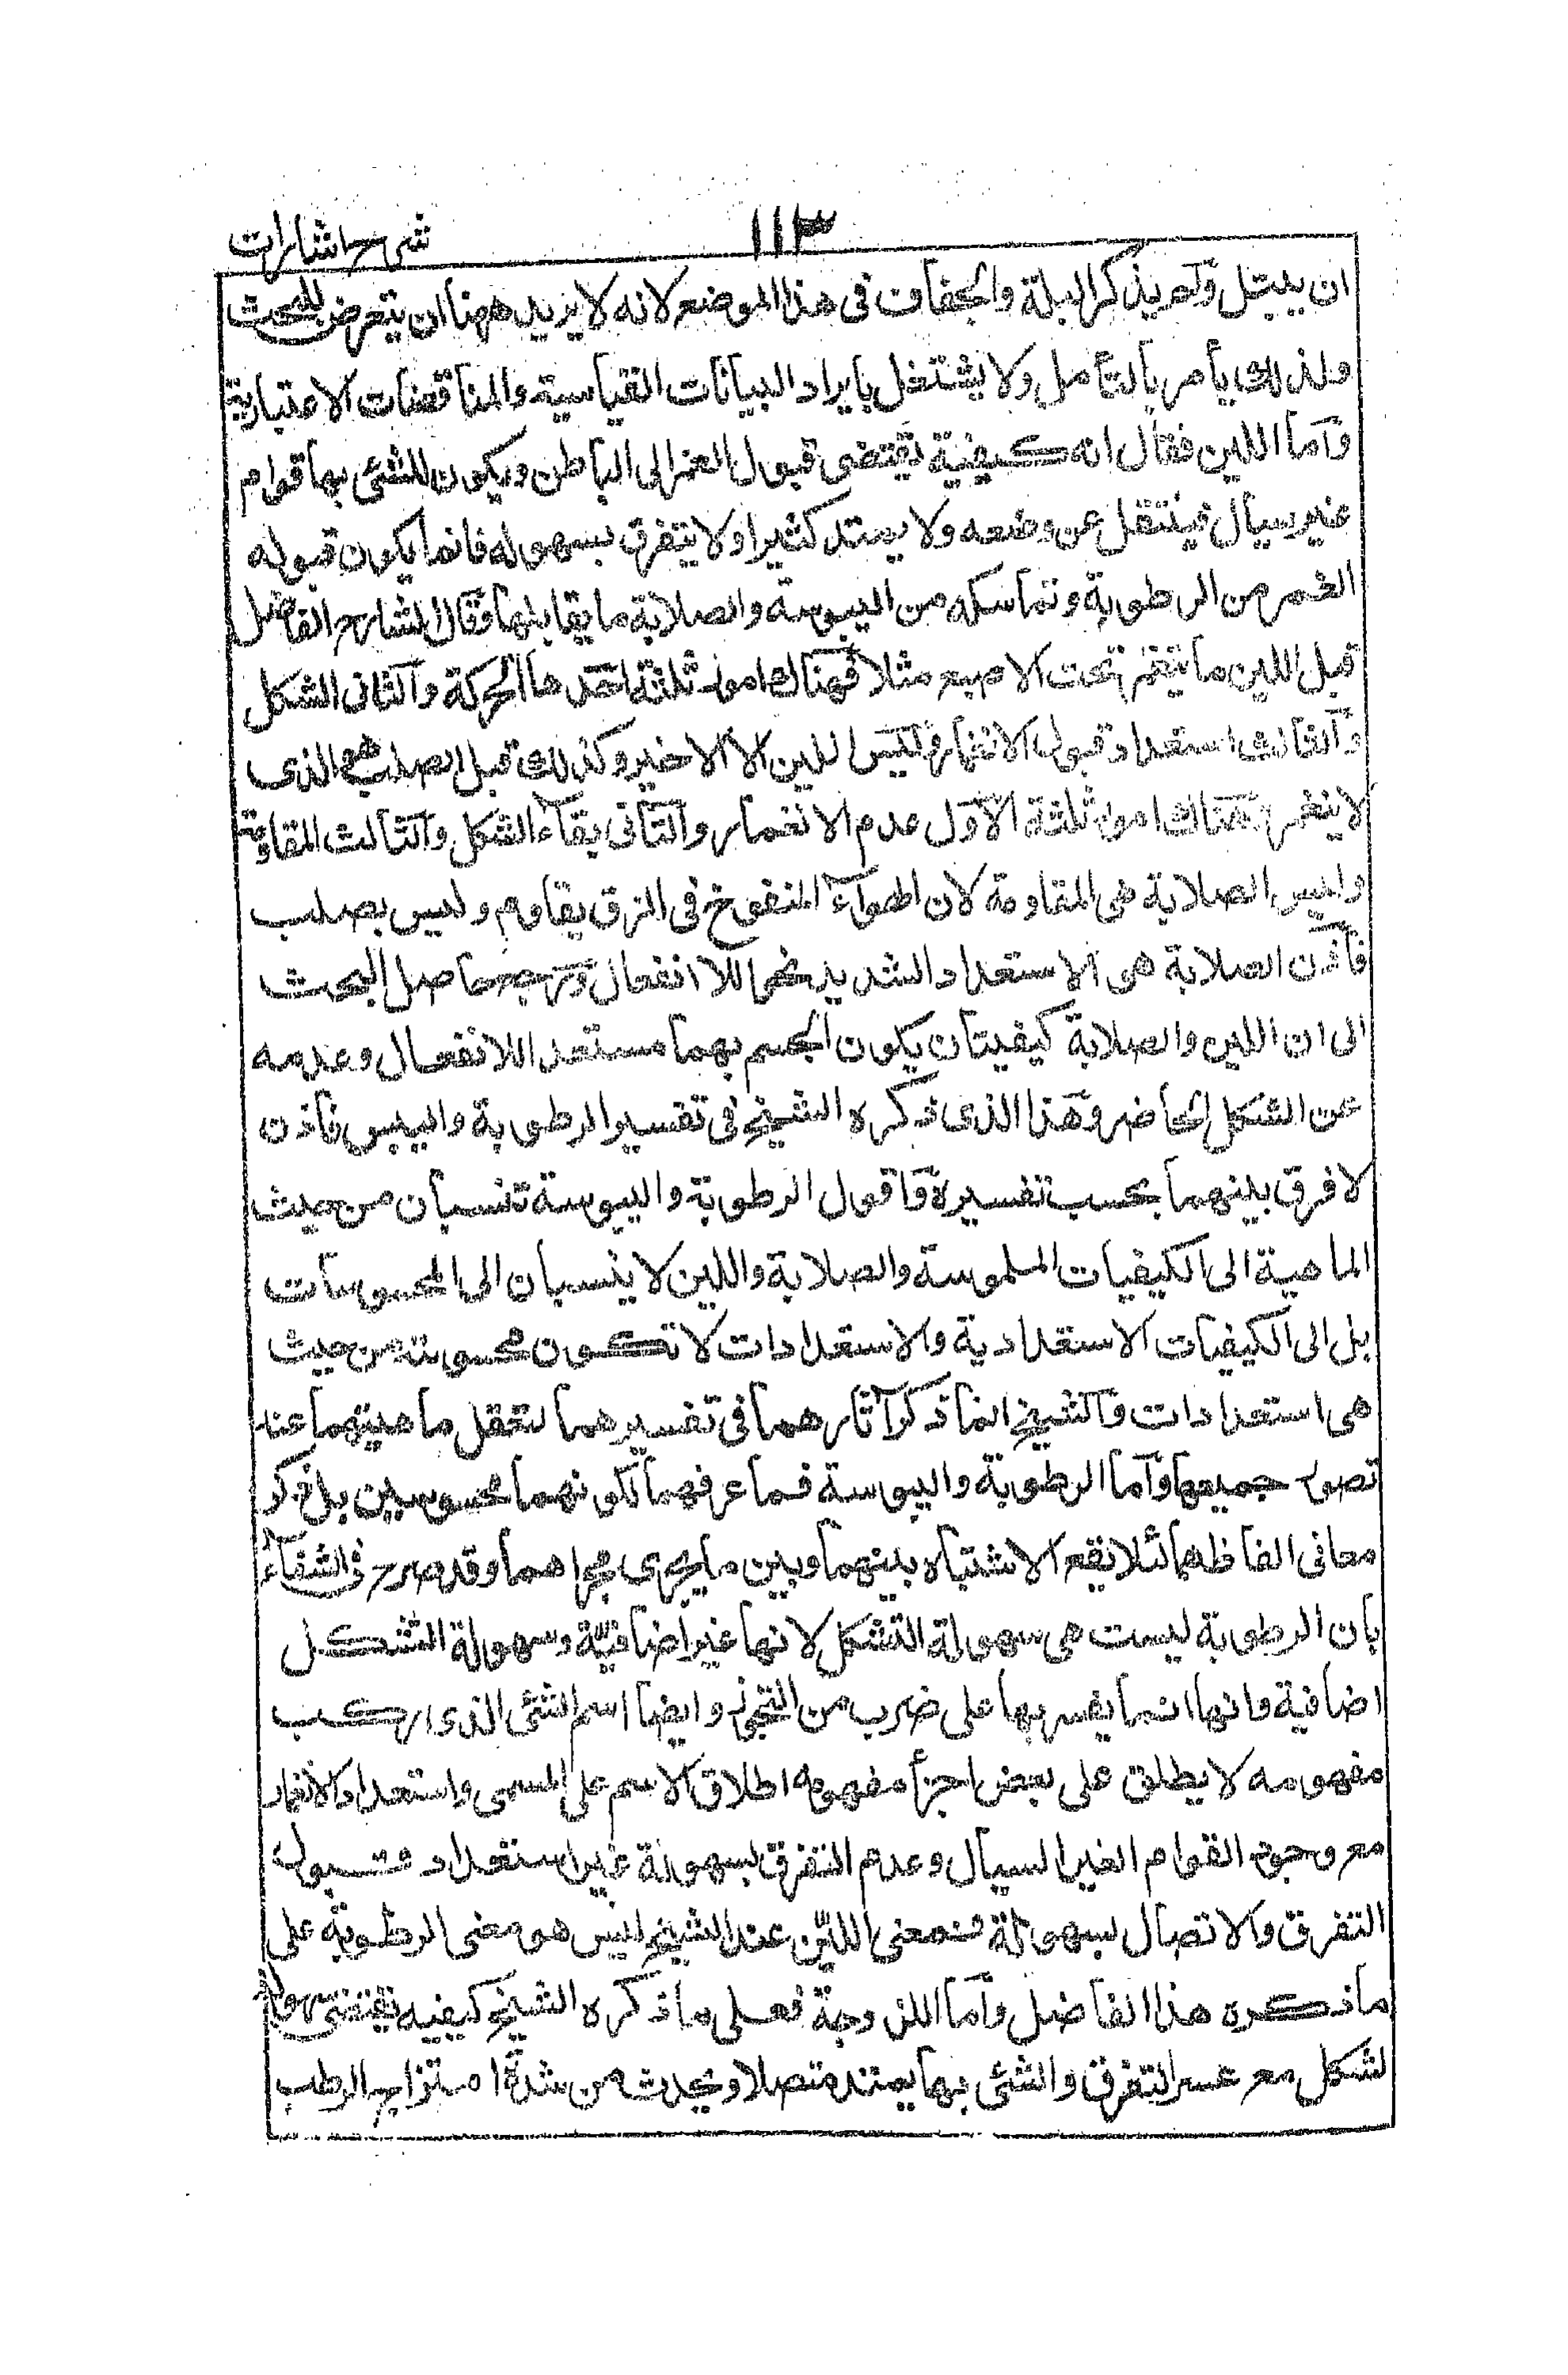 ١١٣ شرح اشارات
ان يبتل ولم يذكر البلة والجفاف فى هذا الموضع لانه لا يريد ههنا ان يتعرض للبحث
ولذلك يأمر بالتأمل ولا يشتغل بايراد البيانات القياسية والمناقضات الاعتبارية
وآما اللين فقال انه كيفية تقتضى قبول الغمز الى الباطن ويكون للشئ بها قوام
غير سيال فينتقل عن وضعه ولا يمتد كثيرا ولا يتفرق بسهولة فانما يكون قبوله
الغمز من الرطوبة وتماسكه من اليبوسة والصلابة ما يقابلها وقال الشارح الفاضل
قيل اللين ما ينغمز تحت الاصبع مثلا فهناك امور ثلثة احدها الحركة والثانى الشكل
والثالث استعداد قبول الانغماز وليس اللين الا الاخير وكذلك قيل الصلب هو الذى
لا ينغمز وهناك امور ثلثة الاول عدم الانغماز والثانى بقاء الشكل والثالث المقاومة
وليس الصلابة هى المقاومة لان الهواء المنفوخ فى الزق يقاوم وليس بصلب
فاذن الصلابة هى الاستعداد الشديد نحو اللا انفعال ويرجع حاصل البحث
الى ان اللين والصلابة كيفيتان يكون الجسم بهما مستعد اللانفعال وعدمه
عن الشكل الحاضر وهذا الذى ذكره الشيخ فى تفسير الرطوبة واليبس فاذن
لا فرق بينهما بحسب تفسيره واقول الرطوبة واليبوسة تنسبان من حيث
الماهية الى الكيفيات الملموسة والصلابة واللين لا ينسبان الى المحسوسات
بل الى الكيفيات الاستعدادية والاستعدادات لا تكون محسوسة من حيث
هى استعدادات والشيخ انما ذكر آثارهما فى تفسيرهما لتعقل ماهيتهما عند
تصور جميعها وآما الرطوبة واليبوسة فما عرفهما لكونهما محسوسين بل ذكر
معانى الفاظهما لئلا يقع الاشتباه بينهما وبين ما يجرى مجراهما وقد صرح فى الشفاء
بان الرطوبة ليست هى سهولة التشكل لانها غير اضافيّة وسهولة التشكل
اضافية وانها انما يفسر بها على ضرب من التجوز وايضا اسم الشئ الذى ركب
مفهومه لا يطلق على بعض اجزأ مفهومه اطلاق الاسم على المسمى واستعداد الانغماز
مع وجود القوام الغير السيال وعدم التفرق بسهولة غير استعداد قبول
التفرق والاتصال بسهولة فمعنى اللين عند الشيخ ليس هو معنى الرطوبة على
ما ذكره هذا الفاضل وآما اللزوجة فعلى ما ذكره الشيخ كيفيه تقتضى سهولة
لشكل مع عسر التفرق والشئ بها يمتد متصلا ويحدث من شدة امتزاج الرطب